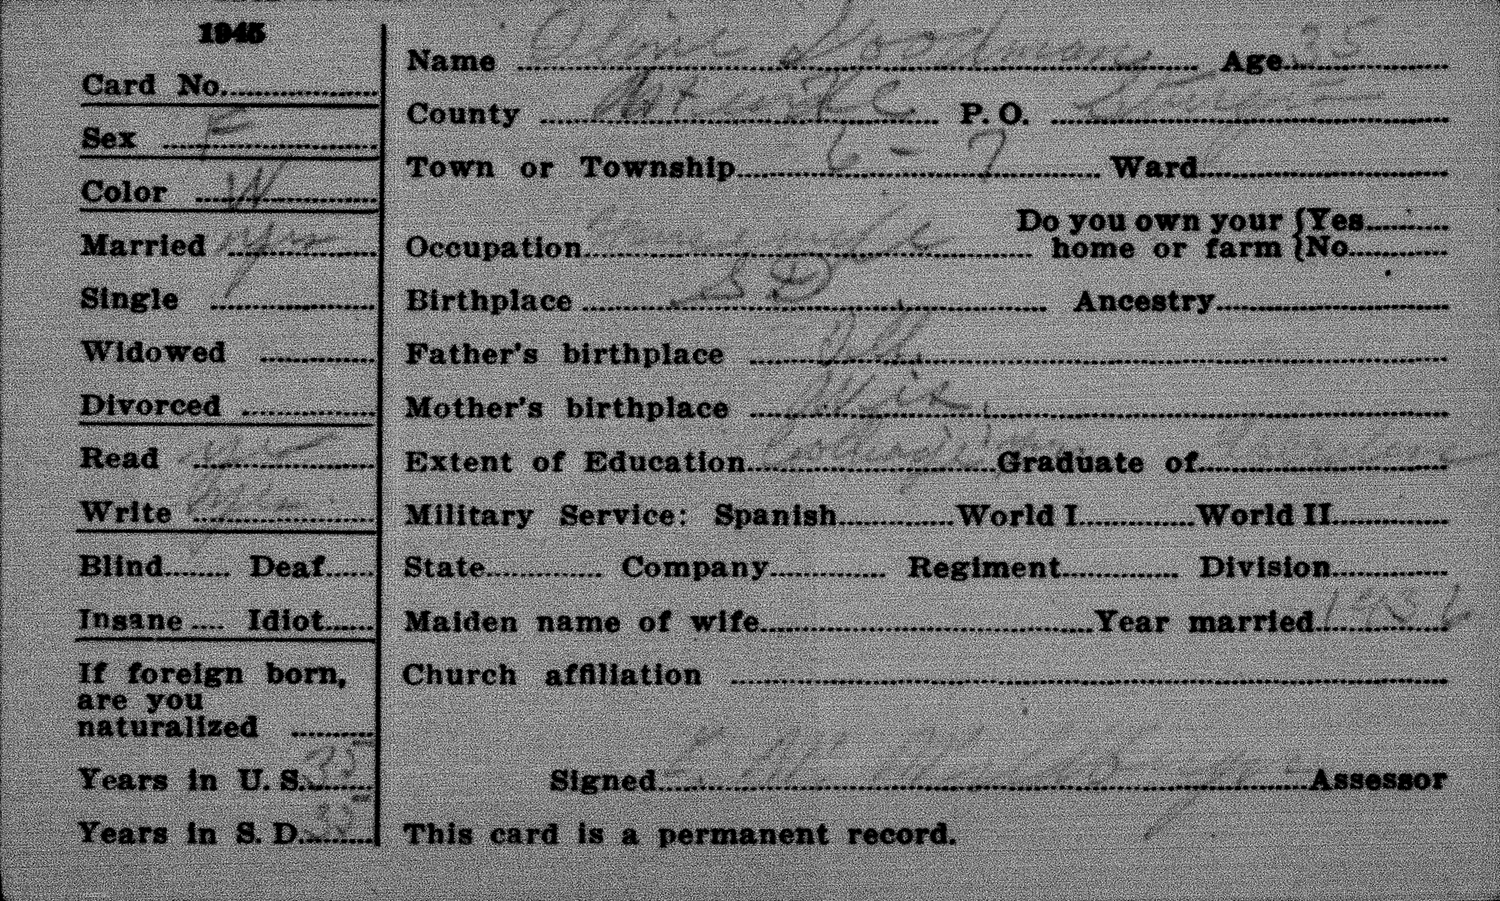 1945
Card No.
Sex F
Color W
Married yes
Single
Widowed
Divorced
Read yes
Write yes
Blind Deaf
Insane Idiot
If foreign born,
are you
naturalized
Years in U. S. 35
Years in S. D. 35
Name Olive Goodman Age 35
County P. O.
Town or Township 6 - 7 Ward
Do you own your {Yes
Occupation Housewife home or farm {No
Birthplace S D Ancestry
Father's birthplace Ill.
Mother's birthplace Wis.
Extent of Education Graduate of
Military Service: Spanish World I World II
State Company Regiment Division
Maiden name of wife Year married 1936
Church affiliation
Signed Assessor
This card is a permanent record.